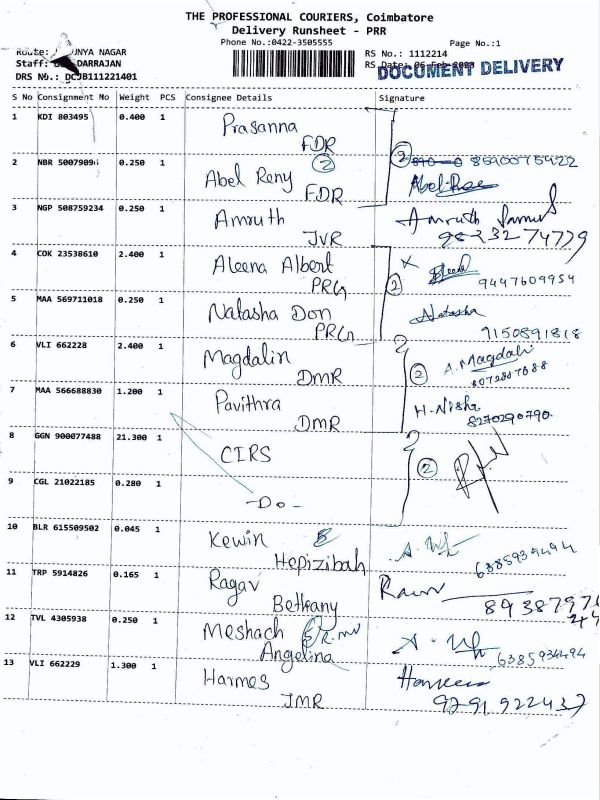 THE PROFESSIONAL COURIERS, Coimbatore
Delivery Runsheet - PRR
Phone No.:0422-3505555
Page No.:1
Route: UNYA NAGAR
RS No.: 1112214
Staff: DARRAJAN
RS Date: 06-Feb
DOCUMENT DELIVERY
DRS No.: DCJB111221401
S No Consignment No Weight PCS Consignee Details Signature
1 KDI 803495 0.400 1 Prasanna
FDR
2 NBR 50079090 0.250 1 Abel Reny ② ② 8590075422
FDR
3 NGP 508759234 0.250 1 Amruth Amruth
JVR 9823274779
4 COK 23538610 2.400 1 Aleena Albert
PRG ② 9447609954
5 MAA 569711018 0.250 1 Natasha Don Natasha
PRG 9150591818
6 VLI 662228 2.400 1 Magdalin ② A. Magdali
DMR 8072887688
7 MAA 566688830 1.200 1 Pavithra H. Nisha
DMR 8270290790
8 GGN 900077488 21.300 1 CIRS
②
9 CGL 21022185 0.280 1 -Do-
10 BLR 615509502 0.045 1 Kewin
Hepizibah 6385934494
11 TRP 5914826 0.165 1 Ragav
Bethany
12 TVL 4305938 0.250 1 Meshach
Angelina 6385934494
13 VLI 662229 1.300 1 Harmes
JMR 9791922437